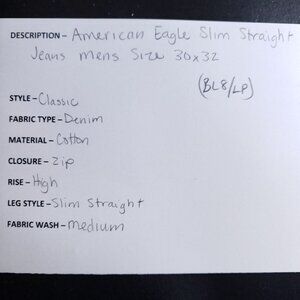 DESCRIPTION – American Eagle Slim Straight
Jeans Mens Size 30x32
(BL8/LP)
STYLE – Classic
FABRIC TYPE – Denim
MATERIAL – Cotton
CLOSURE – Zip
RISE – High
LEG STYLE – Slim Straight
FABRIC WASH – Medium